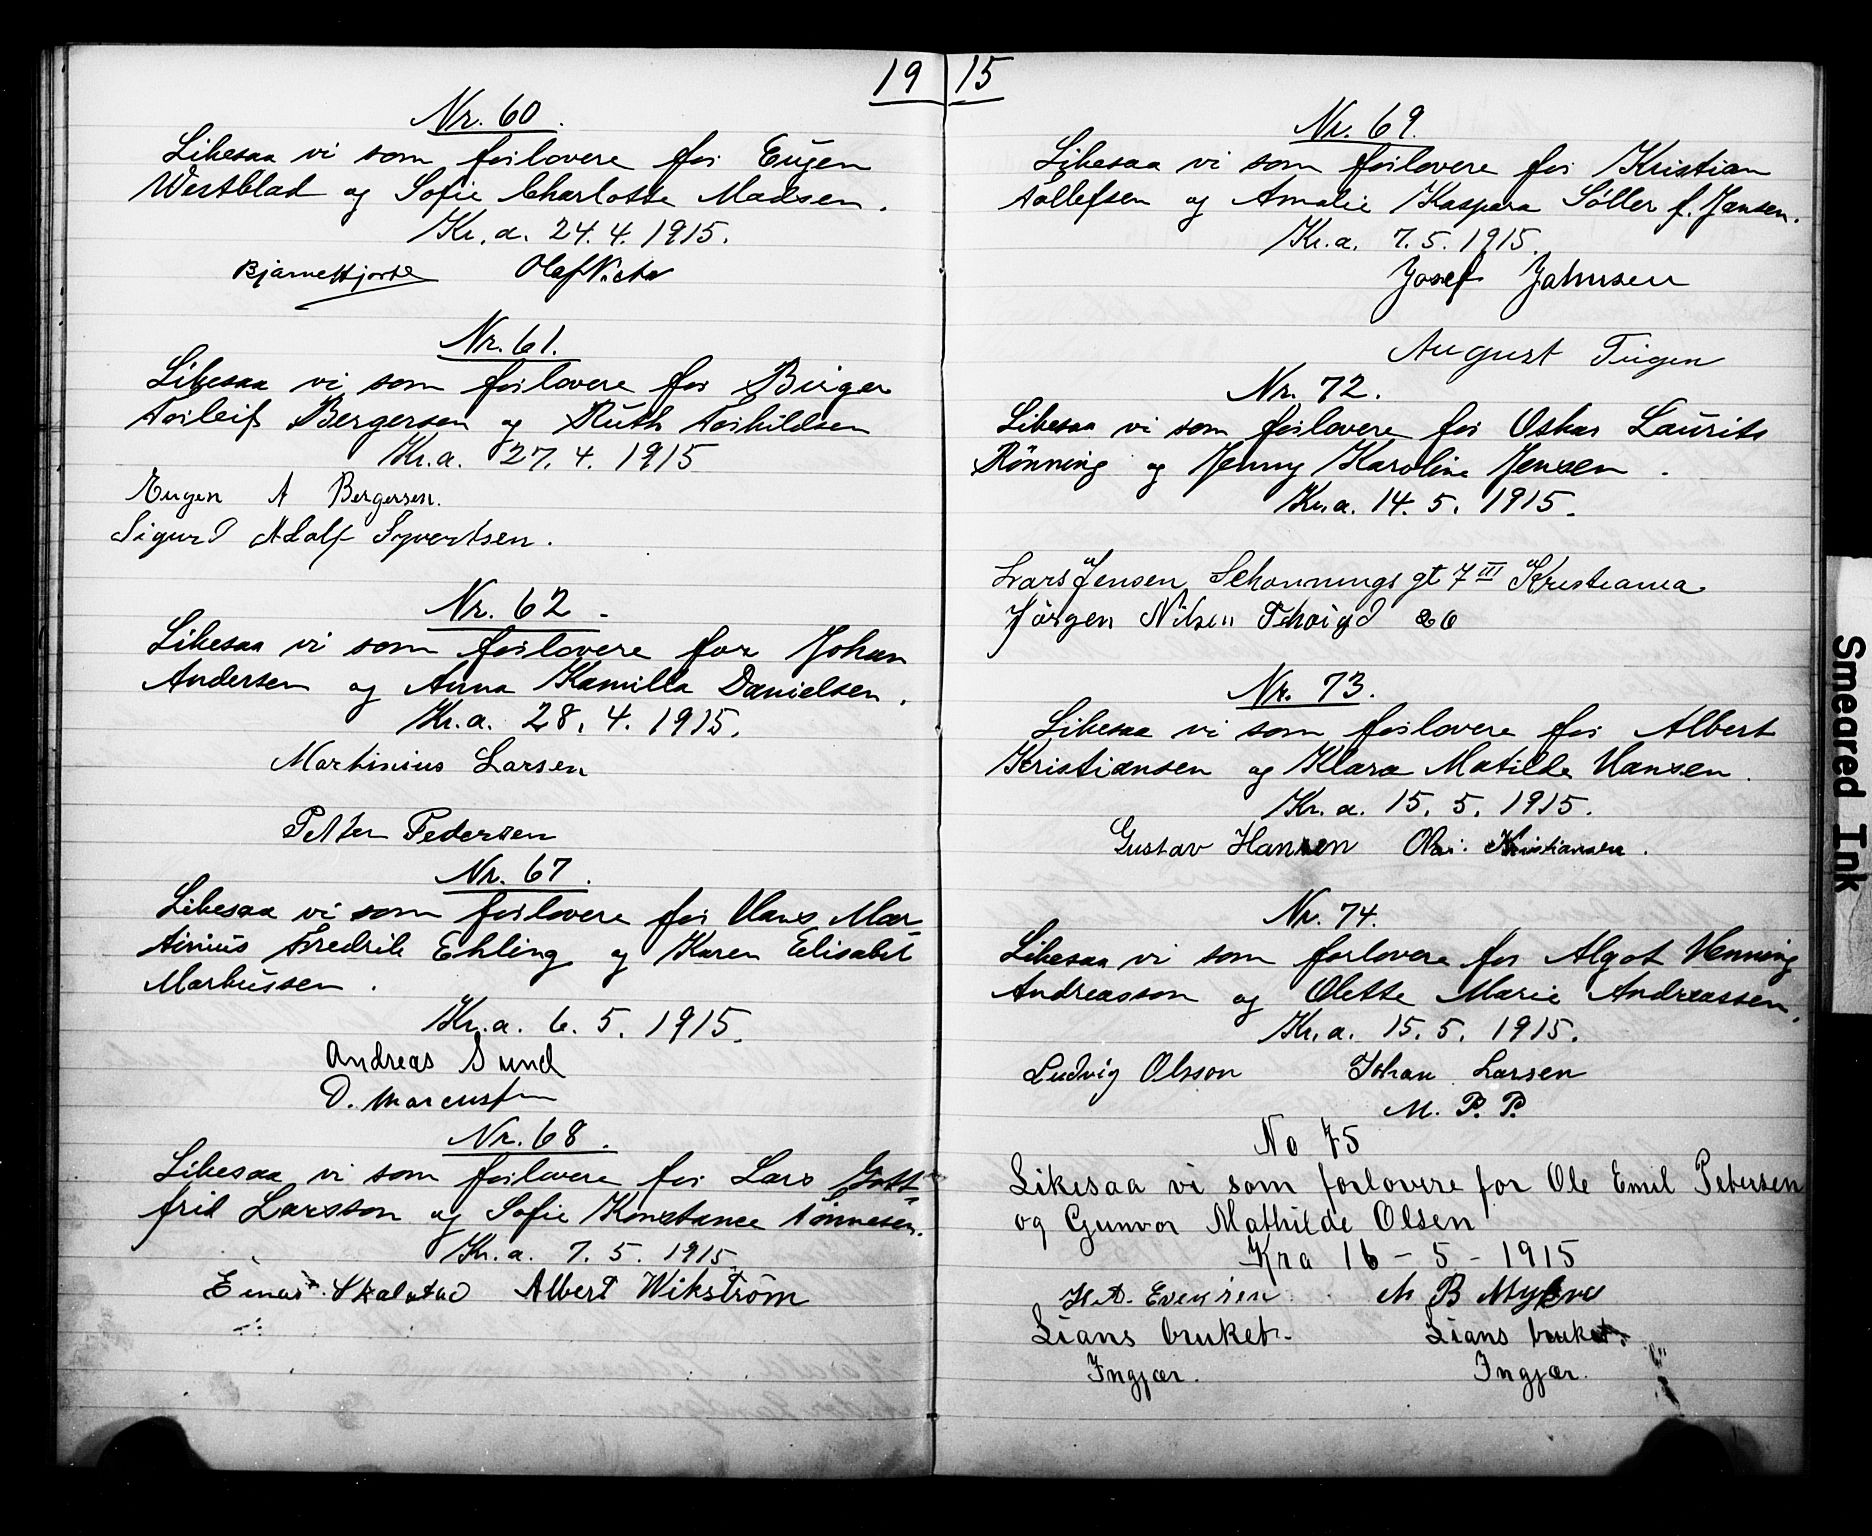 19 15
Nr. 60.
Likesaa vi som forlovere for Eugen
Westblad og Sofie Charlotte Madsen.
Kr.a. 24.4.1915.
Bjarne Hjorth Olaf
Nr. 61.
Likesaa vi som forlovere for Birger
Torleif Bergersen og Ruth Torkildsen
Kr.a. 27.4.1915
Eugen A Bergersen.
Sigurd Adolf Syvertsen.
Nr. 62.
Likesaa vi som forlovere for Johan
Andersen og Anna Kamilla Danielsen.
Kr.a. 28.4.1915.
Martinius Larsen
Petter Pedersen
Nr. 67.
Likesaa vi som forlovere for Hans Mar-
tinius Fredrik Ehling og Karen Elisabet
Markussen.
Kr.a. 6.5.1915.
Andreas Sund
D. Marcussen
Nr. 68.
Likesaa vi som forlovere for Lars Gott-
frid Larsson og Sofie Konstance Tönnesen.
Kr.a. 7.5.1915.
Einar Skalstad Albert Wikström
Nr. 69.
Likesaa vi som forlovere for Kristian
Tollefsen og Amalie Kaspara Søller f. Jansen.
Kr.a. 7.5.1915.
Josef Jahnsen
August
Nr. 72.
Likesaa vi som forlovere for Oskar Laurits
Rønning og Jenny Karoline Jensen.
Kr.a. 14.5.1915.
Lars Jensen Schonnings gt 7 III Kristiania
Jörgen Nilsen 26
Nr. 73.
Likesaa vi som forlovere for Albert
Kristiansen og Klara Matilde Hansen.
Kr.a. 15.5.1915.
Gustav Hansen Kristiansen.
Nr. 74.
Likesaa vi som forlovere for Algot Henning
Andreasson og Olette Marie Andreassen.
Kr.a. 15.5.1915.
Ludvig Olsson Johan Larsen
M. P. P.
No 75
Likesaa vi som forlovere for Ole Emil Petersen
og Gunvor Mathilde Olsen
Kra 16 - 5 - 1915
H. A. Evensen M B Myhre
Lians bruket. Lians bruket.
Ingjær. Ingjær.
Smeared Ink